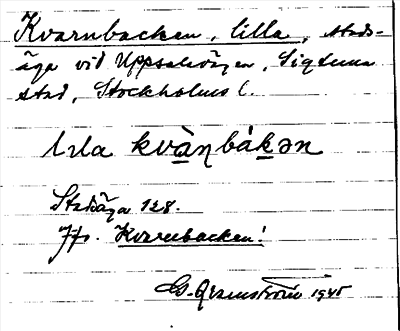 Kvarnbacken, lilla, stads-
äga vid Uppsalavägen, Sigtuna
stad, Stockholms l.
lɩla kvàɳbákən
Stadsäga 128.
Jfr. Kvarnbacken!
1945